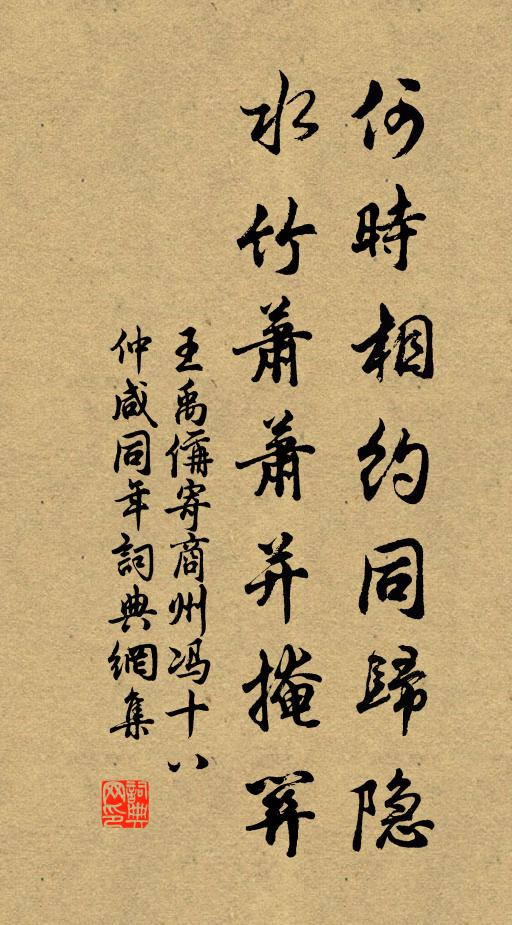 何時相約同歸隐
水竹蕭蕭并掩關
王禹偁寄商州冯十八
仲咸同年詞典網集
詞典网印